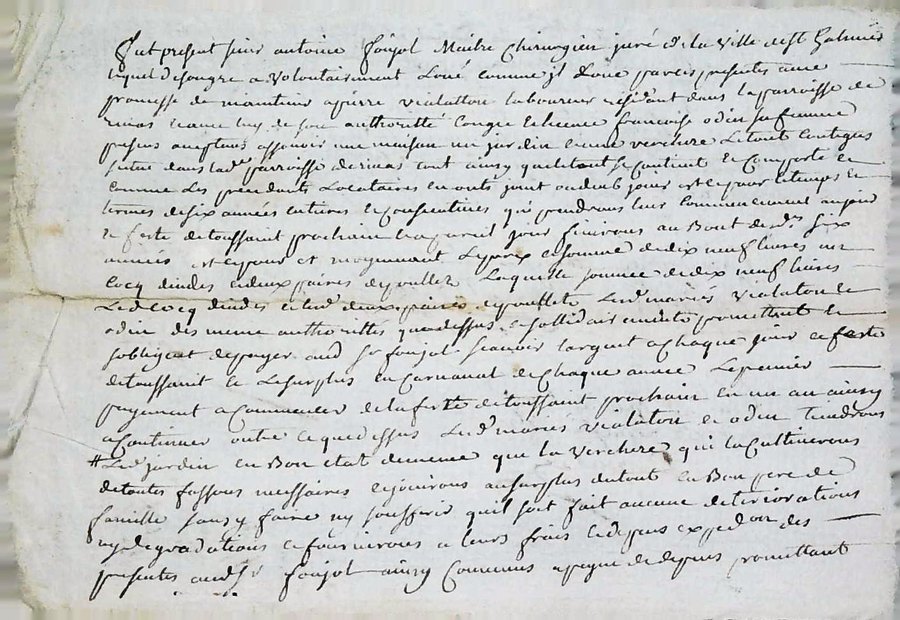 Fut present sieur antoine foujol Maitre Chirurgien juré de la ville de st Galmier
lequel de son gre a volontairement Loué comme jl Loue par ces presentes avec
promesse de maintenir a pierre vialatton laboureur residant dans la parroisse de
et avec luy de son authoritté Congé et licence francoise odin sa femme
presens acceptans assavoir une maison un jardin et une verchere Le tout contigus
scitué dans lade parroisse de tout ainsy que le tout se Contient et Comporte et
Comme Les precedants Locataires en ont jouit ou deub jouir et ce pour le temps et
termes de six années entieres et Consecutives qui prendrons leur Commencement au jour
et feste de toussaint prochain et a pareil jour finirons au Bout desdes six
années et ce pour et moyennant Le prix et somme de dix neuf livres un
Cocq dindes et deux paires de poullets Laquelle somme de dix neuf livres
Led Cocq dindes et lesd deux paires de poullets Lesd mariés vialaton et
odin des meme authorittés que dessus et sollidairement promettent et
sobligent de payer aud sr foujol scavoir largent a chaque jour et feste
de toussaint et Le surplus en Carnaval de Chaque année Le premier
payement a Commencer de la feste de toussaint prochain en un an ainsy
a Continuer outre ce que dessus Lesd mariés vialaton et odin tiendrons
# Led jardin en Bon etat de meme que la verchere qui la Cultiverons
de toutes fassons necessaires et jouirons au surplus du tout en Bon pere de
famille sans y faire ny souffrir quil soit fait aucune deteriorations
ny degradations et fournirons a leurs frais et depens expedon des
presentes aud sr foujol ainsy Convenus a peyne de depens promettant